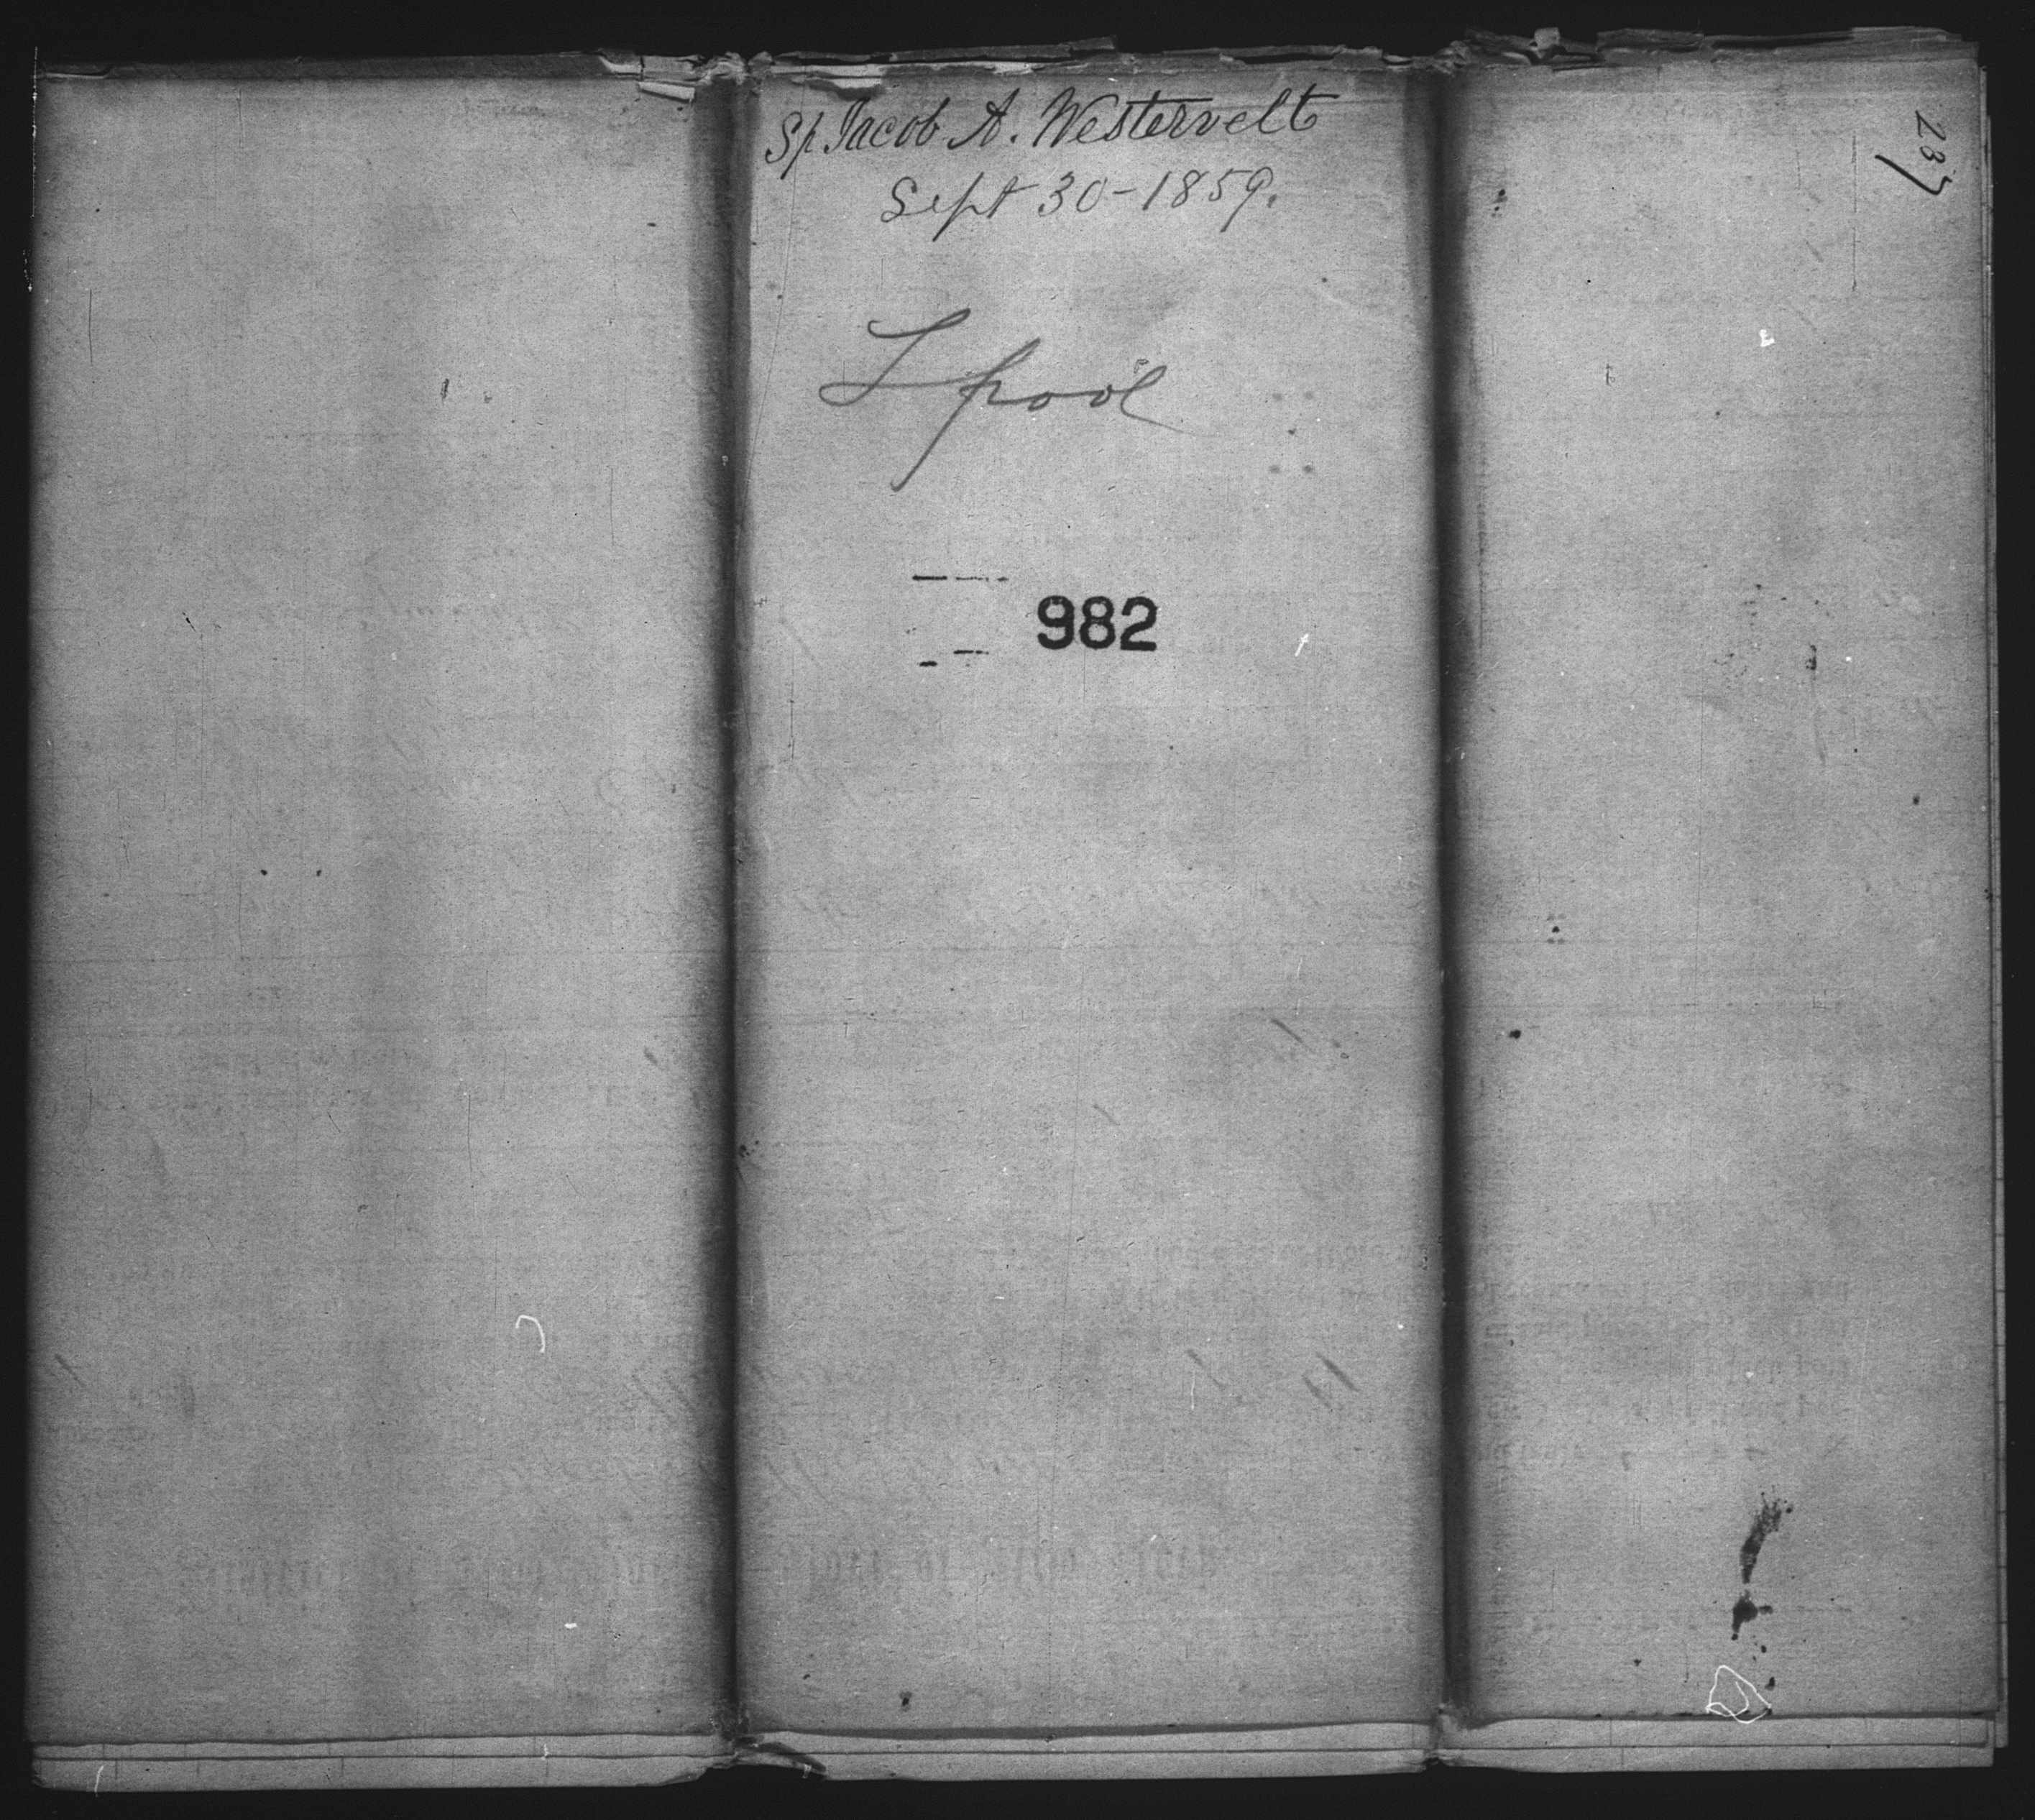 Sp. Jacob A. Westervelt
Sept 30-1859.
L'pool
982
237